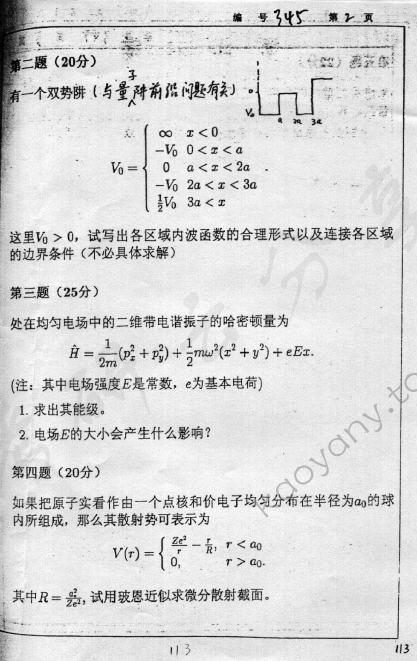 编 号 345 第 2 页
第二题（20分）
有一个双势阱（与量子阱前沿问题有关）
V₀ = { ∞ x < 0
−V₀ 0 < x < a
0 a < x < 2a .
−V₀ 2a < x < 3a
½V₀ 3a < x
0 V₀ a 2a 3a
这里V₀ > 0，试写出各区域内波函数的合理形式以及连接各区域
的边界条件（不必具体求解）
第三题（25分）
处在均匀电场中的二维带电谐振子的哈密顿量为
Ĥ = 1/2m (pₓ² + p_y²) + 1/2 mω²(x² + y²) + eEx.
(注：其中电场强度E是常数，e为基本电荷)
1. 求出其能级。
2. 电场E的大小会产生什么影响？
第四题（20分）
如果把原子实看作由一个点核和价电子均匀分布在半径为a₀的球
内所组成，那么其散射势可表示为
V(r) = { Ze²/r − r/R, r < a₀
0, r > a₀.
其中R = a₀²/Ze², 试用玻恩近似求微分散射截面。
113
113
kaoyany.to